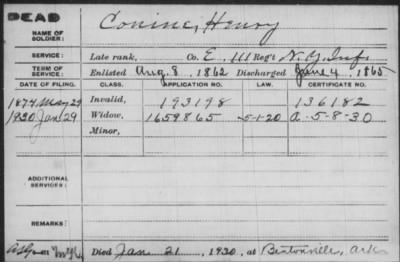 DEAD
NAME OF SOLDIER: Conine, Henry
SERVICE: Late rank, Co. E, 111 Reg't N.Y. Inf.
TERM OF SERVICE: Enlisted Aug. 8, 1862 Discharged June 4, 1865
DATE OF FILING. CLASS. APPLICATION NO. LAW. CERTIFICATE NO.
1874 May 29 Invalid, 193198 136182
1920 Jan 29 Widow, 1659865 5-1-20 A-5-8-30
Minor,
ADDITIONAL SERVICES:
REMARKS:
Died Jan. 21, 1920, at Bentonville, Ark